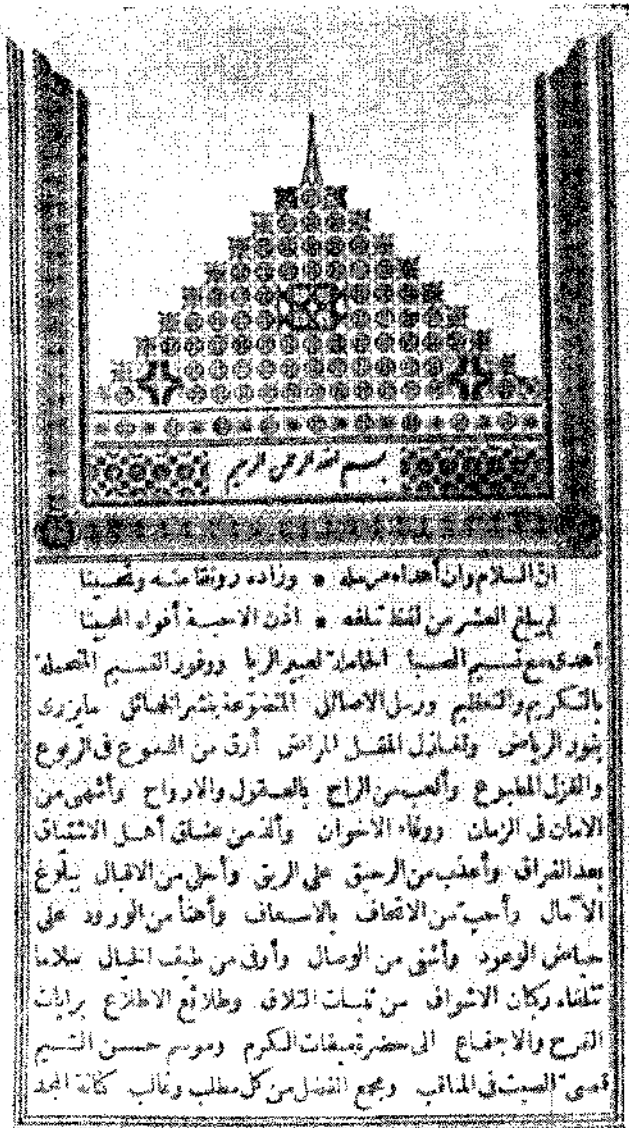 بسم الله الرحمن الرحيم
ان السلام وان أهداه مرسله * وزاده رونقا منه وتحسينا
لم يبلغ العشر من لفظ تبلغه * اذن الاحبة أفواه المحبينا
أهدى مع نسيم الصبا الحاملة لعبير الربا ووفود النسيم المتحملة
بالتكريم والتعظيم ورسل الاصائل المتضوعة بنشر الخمائل مايزرى
بنور الرياض وتغازل المقل المراض أرق من الدموع فى الربوع
والغزل المطبوع وألعب من الراح بالعقول والارواح وأشهى من
الامان فى الزمان ووفاء الاخوان وألذ من عناق أهل الاشتياق
بعد الفراق وأعذب من الرحيق على الريق وأحلى من الاقبال ببلوغ
الآمال وأحب من الاتحاف بالاسعاف وأهنأ من الورود على
حياض الوعود وأشهى من الوصال وأرق من طيف الخيال سلاما
تتلقاه ركبان الاشواق من ثنيات التلاق وطلائع الاطلاع برايات
الفرح والاجتماع الى حضرة ميقات الكرم وموسم حسن الشيم
قصى الصيت فى المناقب ومجمع الفضل من كل مطلب وطالب كنانة المجد